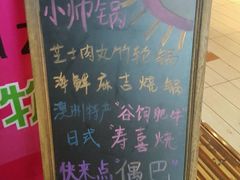 小帅锅
芝士肉丸竹轮锅
海鲜麻吉烧锅
澳洲特产"谷饲肥牛"
日式"寿喜烧"
快来点"偶巴"